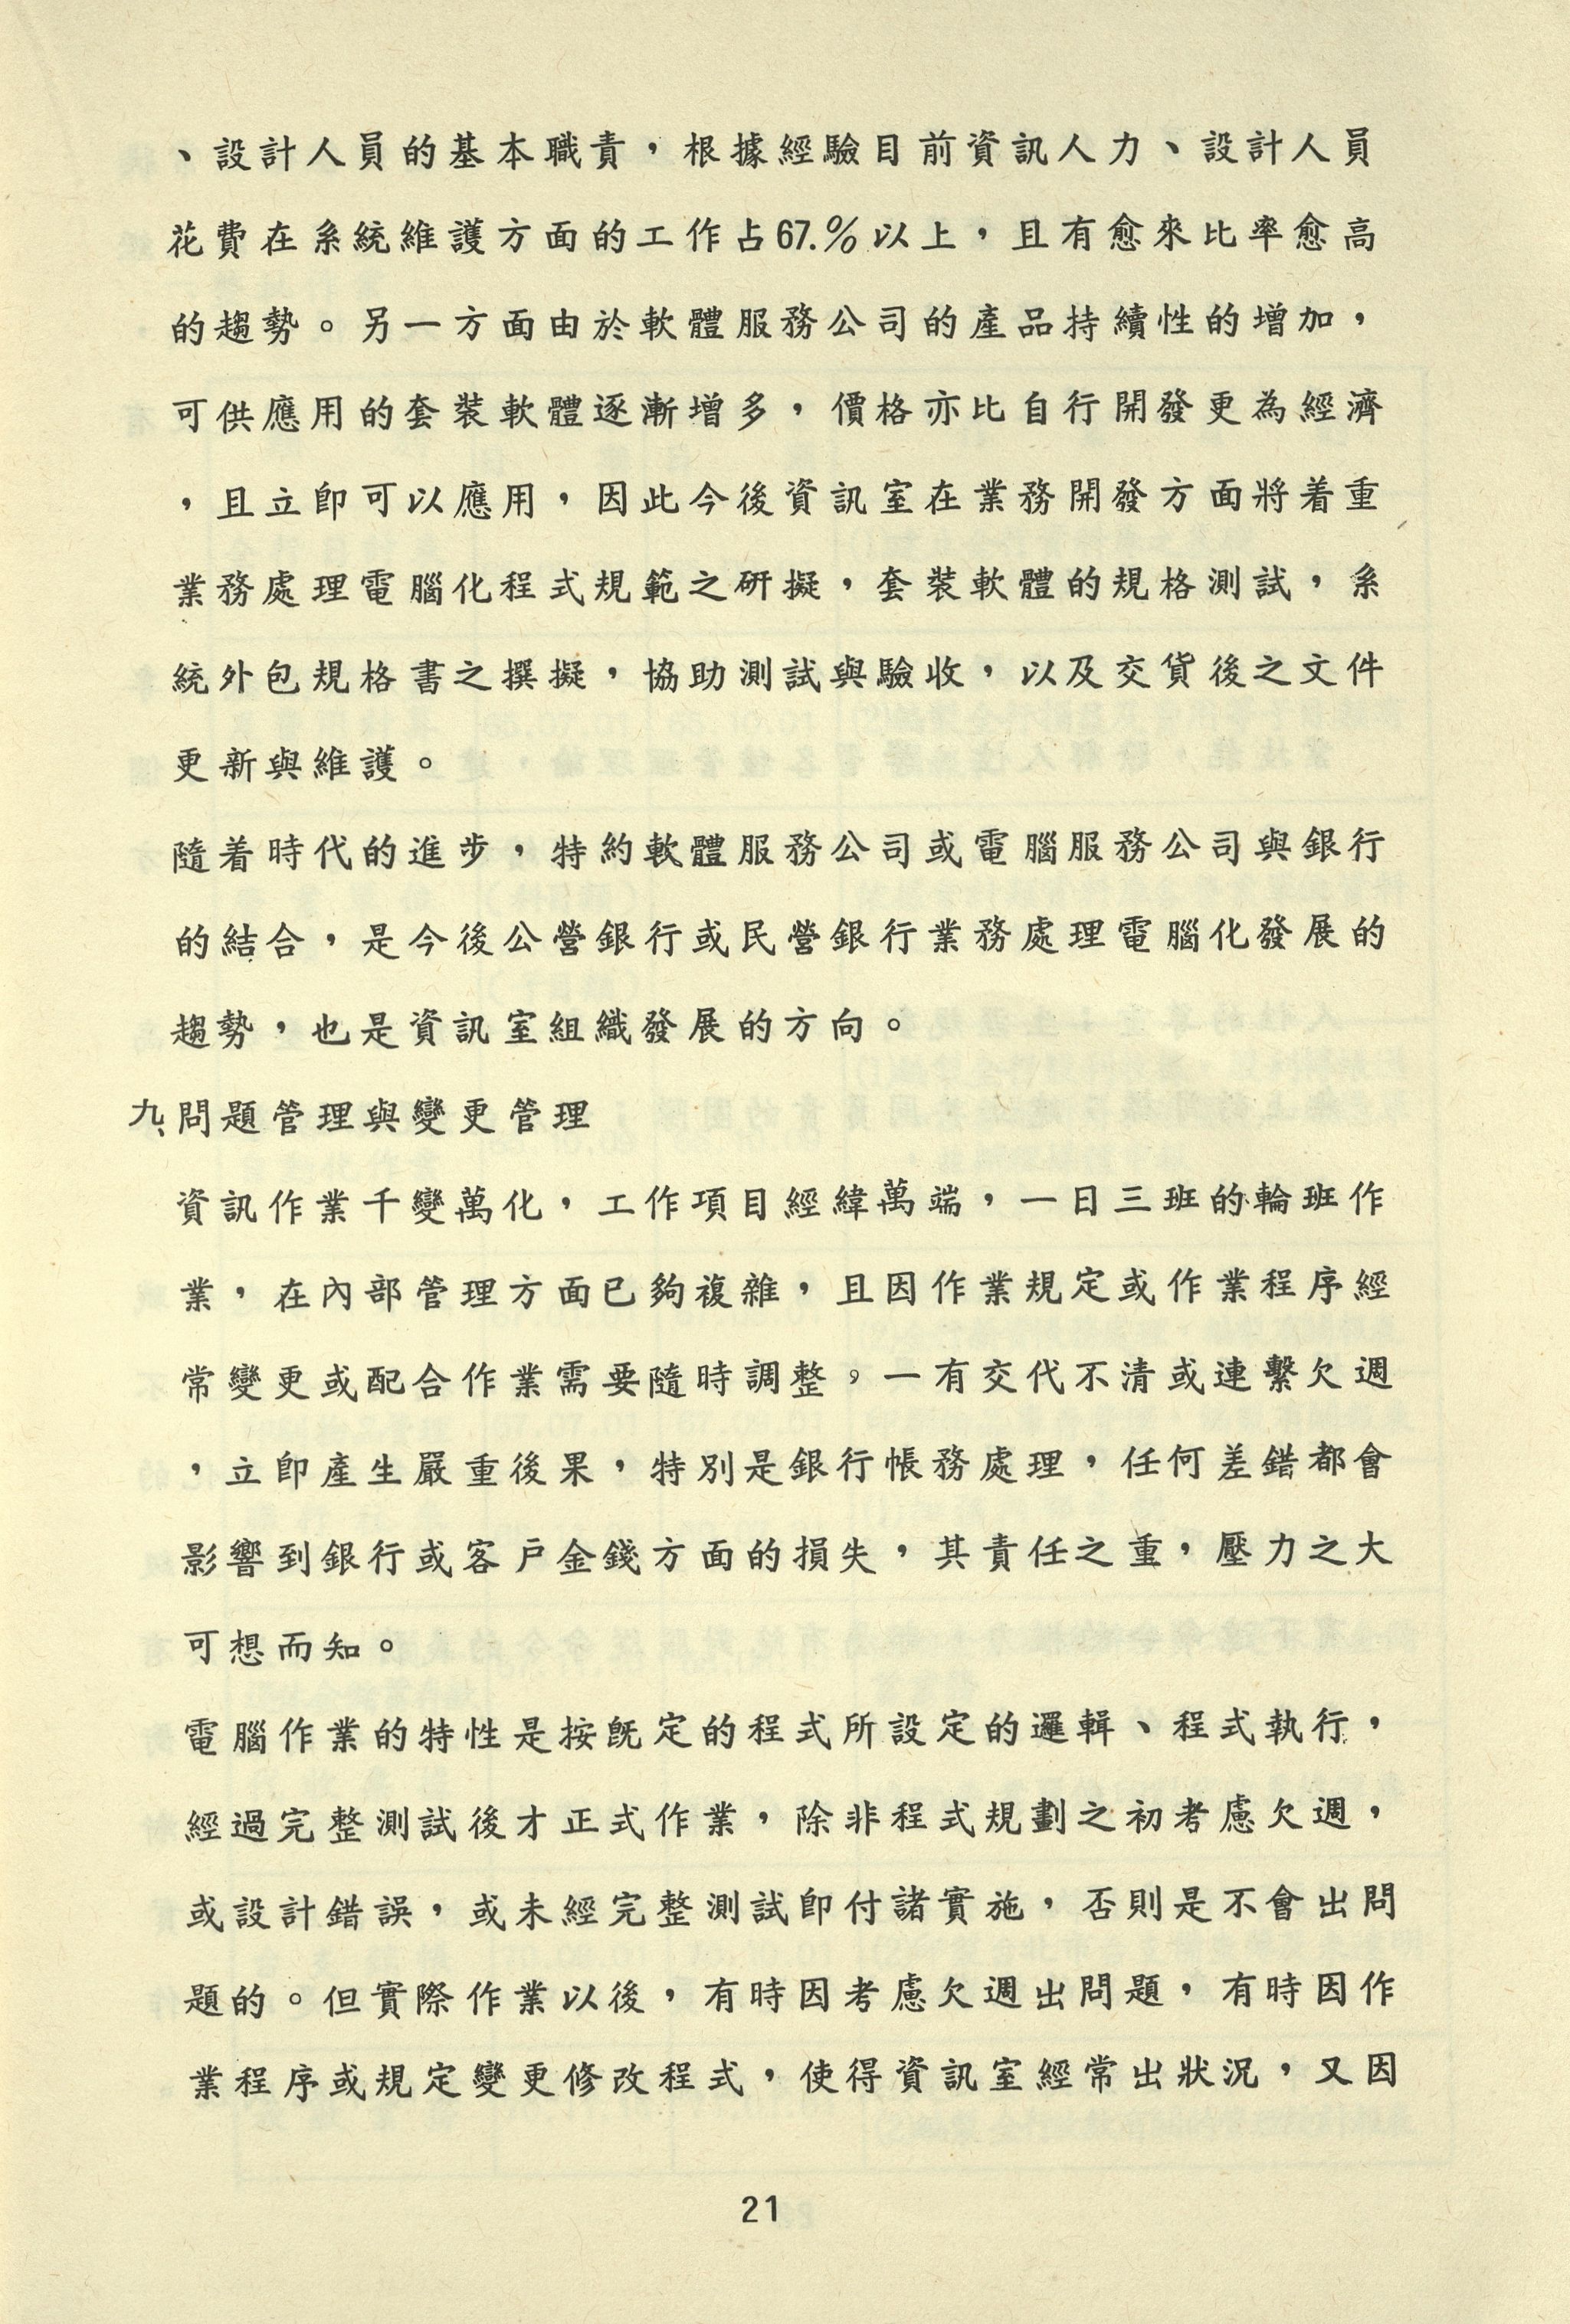 、設計人員的基本職責，根據經驗目前資訊人力、設計人員
花費在系統維護方面的工作占67.％以上，且有愈來比率愈高
的趨勢。另一方面由於軟體服務公司的產品持續性的增加，
可供應用的套裝軟體逐漸增多，價格亦比自行開發更為經濟
，且立即可以應用，因此今後資訊室在業務開發方面將着重
業務處理電腦化程式規範之研擬，套裝軟體的規格測試，系
統外包規格書之撰擬，協助測試與驗收，以及交貨後之文件
更新與維護。
隨着時代的進步，特約軟體服務公司或電腦服務公司與銀行
的結合，是今後公營銀行或民營銀行業務處理電腦化發展的
趨勢，也是資訊室組織發展的方向。
九、問題管理與變更管理
資訊作業千變萬化，工作項目經緯萬端，一日三班的輪班作
業，在內部管理方面已夠複雜，且因作業規定或作業程序經
常變更或配合作業需要隨時調整。一有交代不清或連繫欠週
，立即產生嚴重後果，特別是銀行帳務處理，任何差錯都會
影響到銀行或客戶金錢方面的損失，其責任之重，壓力之大
可想而知。
電腦作業的特性是按既定的程式所設定的邏輯、程式執行，
經過完整測試後才正式作業，除非程式規劃之初考慮欠週，
或設計錯誤，或未經完整測試即付諸實施，否則是不會出問
題的。但實際作業以後，有時因考慮欠週出問題，有時因作
業程序或規定變更修改程式，使得資訊室經常出狀況，又因
21